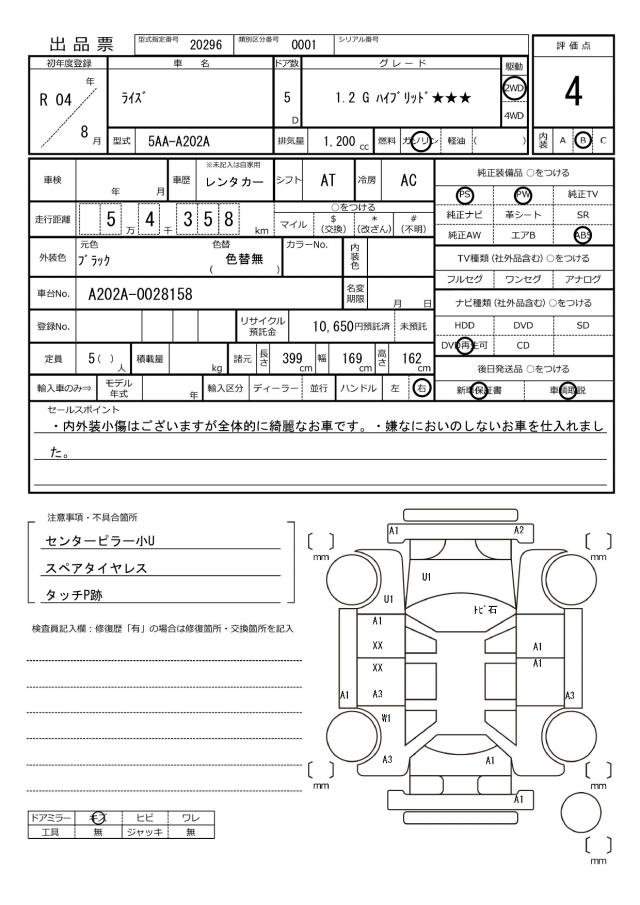 出品票
型式指定番号 20296 類別区分番号 0001 シリアル番号
評価点
4
初年度登録 車名 ドア数 グレード 駆動
R 04 年 8 月
ライズ 5 D 1.2 G ハイブリッド★★★ 2WD 4WD
型式 5AA-A202A 排気量 1,200 cc 燃料 ガソリン 軽油 ( )
内装 A B C
車検 年 月 車歴 ※未記入は自家用 レンタカー シフト AT 冷房 AC
走行距離 5 万 4 千 3 5 8 km
○をつける
マイル $(交換) *(改ざん) #(不明)
外装色 元色 ブラック 色替 ( 色替無 ) カラーNo. 内装色
車台No. A202A-0028158 名変期限 月 日
登録No. リサイクル預託金 10,650円預託済 未預託
定員 5( )人 積載量 kg 諸元 長さ 399 cm 幅 169 cm 高さ 162 cm
輸入車のみ⇒ モデル年式 年 輸入区分 ディーラー 並行 ハンドル 左 右
純正装備品 ○をつける
PS PW 純正TV
純正ナビ 革シート SR
純正AW エアB ABS
TV種類(社外品含む) ○をつける
フルセグ ワンセグ アナログ
ナビ種類(社外品含む) ○をつける
HDD DVD SD
DVD再生可 CD
後日発送品 ○をつける
新車保証書 車輌取説
セールスポイント
・内外装小傷はございますが全体的に綺麗なお車です。・嫌なにおいのしないお車を仕入れまし
た。
注意事項・不具合箇所
センターピラー小U
スペアタイヤレス
タッチP跡
検査員記入欄：修復歴「有」の場合は修復箇所・交換箇所を記入
A1 A2
mm mm
U1
U1 トビ石
A1
XX A1
XX A1
A1 A3 A3
W1
A3 A1
mm mm
A1
mm
ドアミラー キズ ヒビ ワレ
工具 無 ジャッキ 無